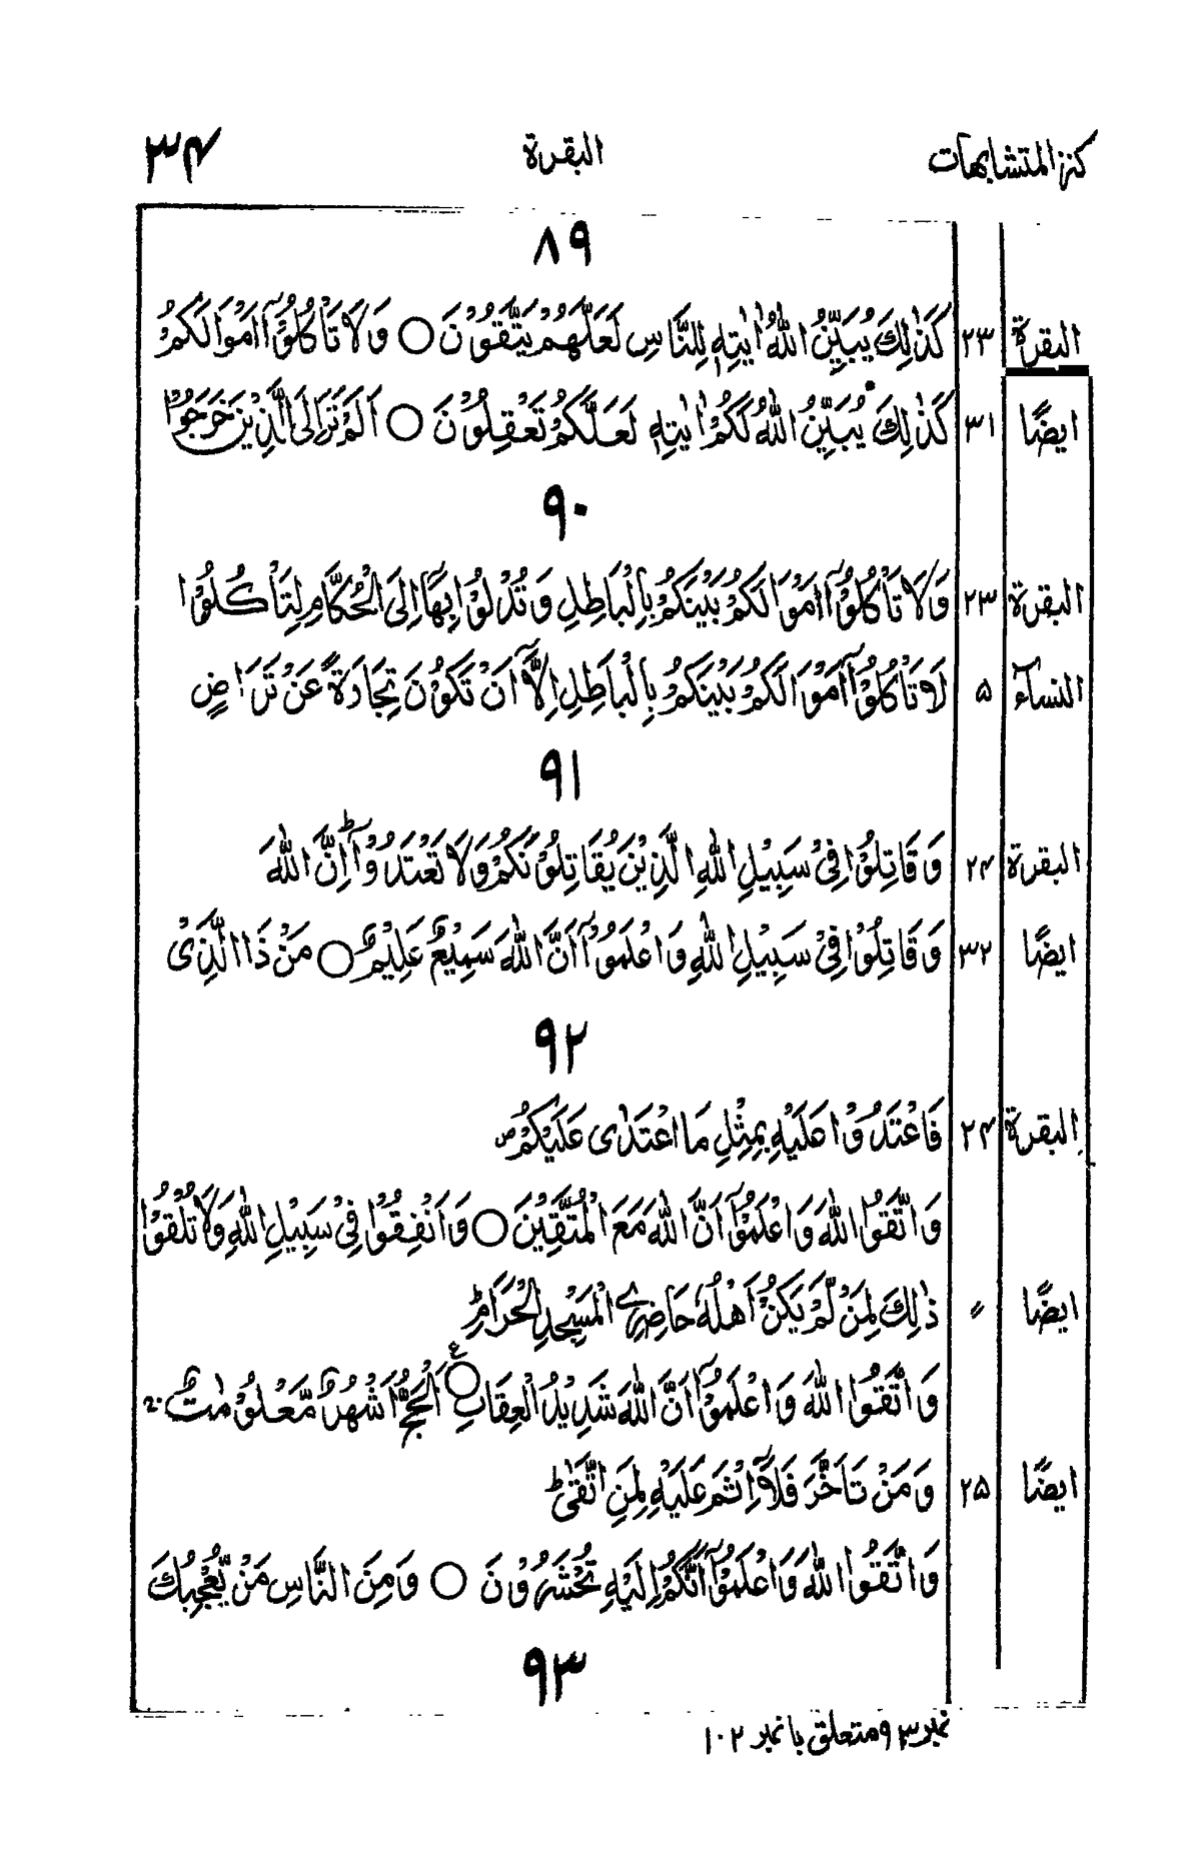 كنز المتشابهات البقرة ۳۴
۸۹
البقرة ۲۳ كَذٰلِكَ يُبَيِّنُ اللّٰهُ اٰيٰتِهٖ لِلنَّاسِ لَعَلَّهُمْ يَتَّقُوْنَ ○ وَلَا تَاْكُلُوْٓا اَمْوَالَكُمْ
ايضًا ۳۱ كَذٰلِكَ يُبَيِّنُ اللّٰهُ لَكُمْ اٰيٰتِهٖ لَعَلَّكُمْ تَعْقِلُوْنَ ○ اَلَمْ تَرَ اِلَى الَّذِيْنَ خَرَجُوْا
۹۰
البقرة ۲۳ وَلَا تَاْكُلُوْٓا اَمْوَالَكُمْ بَيْنَكُمْ بِالْبَاطِلِ وَتُدْلُوْا بِهَآ اِلَى الْحُكَّامِ لِتَاْكُلُوْا
النسآء ۵ لَا تَاْكُلُوْٓا اَمْوَالَكُمْ بَيْنَكُمْ بِالْبَاطِلِ اِلَّآ اَنْ تَكُوْنَ تِجَارَةً عَنْ تَرَاضٍ
۹۱
البقرة ۲۴ وَقَاتِلُوْا فِيْ سَبِيْلِ اللّٰهِ الَّذِيْنَ يُقَاتِلُوْنَكُمْ وَلَا تَعْتَدُوْا ؕ اِنَّ اللّٰهَ
ايضًا ۳۲ وَقَاتِلُوْا فِيْ سَبِيْلِ اللّٰهِ وَاعْلَمُوْٓا اَنَّ اللّٰهَ سَمِيْعٌ عَلِيْمٌ ○ مَنْ ذَا الَّذِيْ
۹۲
البقرة ۲۴ فَاعْتَدُوْا عَلَيْهِ بِمِثْلِ مَا اعْتَدٰى عَلَيْكُمْ ص
وَاتَّقُوا اللّٰهَ وَاعْلَمُوْٓا اَنَّ اللّٰهَ مَعَ الْمُتَّقِيْنَ ○ وَاَنْفِقُوْا فِيْ سَبِيْلِ اللّٰهِ وَلَا تُلْقُوْا
ايضًا 〃 ذٰلِكَ لِمَنْ لَّمْ يَكُنْ اَهْلُهٗ حَاضِرِي الْمَسْجِدِ الْحَرَامِ ؕ
وَاتَّقُوا اللّٰهَ وَاعْلَمُوْٓا اَنَّ اللّٰهَ شَدِيْدُ الْعِقَابِ ○ ع اَلْحَجُّ اَشْهُرٌ مَّعْلُوْمٰتٌ
ايضًا ۲۵ وَمَنْ تَاَخَّرَ فَلَآ اِثْمَ عَلَيْهِ لِمَنِ اتَّقٰى ؕ
وَاتَّقُوا اللّٰهَ وَاعْلَمُوْٓا اَنَّكُمْ اِلَيْهِ تُحْشَرُوْنَ ○ وَمِنَ النَّاسِ مَنْ يُّعْجِبُكَ
۹۳
نمبر ۹۳ متعلق با نمبر ۱۰۲